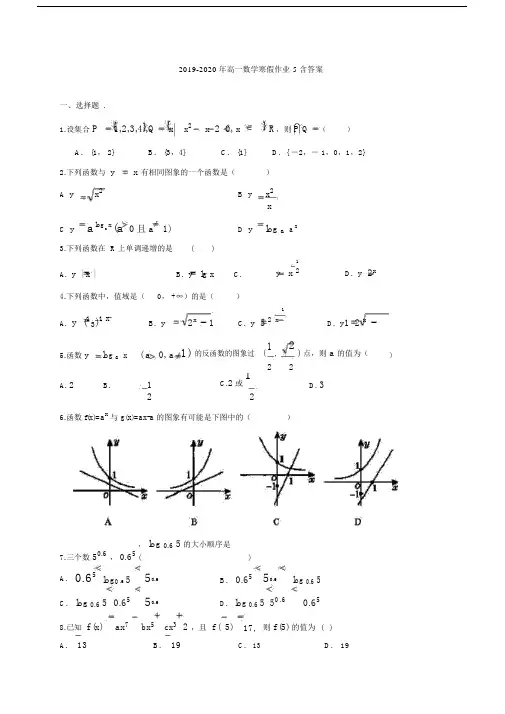 2019-2020 年高一数学寒假作业 5 含答案
一、选择题 .
1.设集合 P = {1,2,3,4},Q = {x| x² − x−2 ≤0, x ∈ R},则 P∩Q =( )
A . {1, 2} B . {3,4} C . {1} D .{ -2,- 1,0,1,2}
2.下列函数与 y = x 有相同图象的一个函数是( )
A y = √x² B y = x²/x
C y = a^(log_a x) (a > 0 且 a ≠ 1) D y = log_a a^x
3.下列函数在 R 上单调递增的是 ( )
A. y = |x| B.y= lg x C. y= x^(1/2) D.y= 2^x
4.下列函数中,值域是( 0, +∞)的是( )
A. y = (1/3)^(1-x) B. y = √(2^x − 1) C. y = D.y
5.函数 y = log_a x (a > 0, a ≠ 1) 的反函数的图象过 (1/2, √2/2) 点,则 a 的值为( )
A.2 B. 1/2 C.2 或 1/2 D.3
6.函数 f(x)=a^x 与 g(x)=ax-a 的图象有可能是下图中的( )
y 1 o x
y 1 o x
y 1 o 1 x -1
y 1 o 1 x -1
A B C D
, log_0.6 5 的大小顺序是
7.三个数 5^0.6 , 0.6^5 ( )
A. 0.6^5 < log_0.6 5 < 5^0.6 B. 0.6^5 < 5^0.6 < log_0.6 5
C. log_0.6 5 < 0.6^5 < 5^0.6 D. log_0.6 5 < 5^0.6 < 0.6^5
8.已知 f(x) = ax^7 − bx^5 + cx^3 + 2 ,且 f( − 5) = 17, 则 f(5) 的值为 ( )
A. − 13 B. − 19 C. 13 D. 19